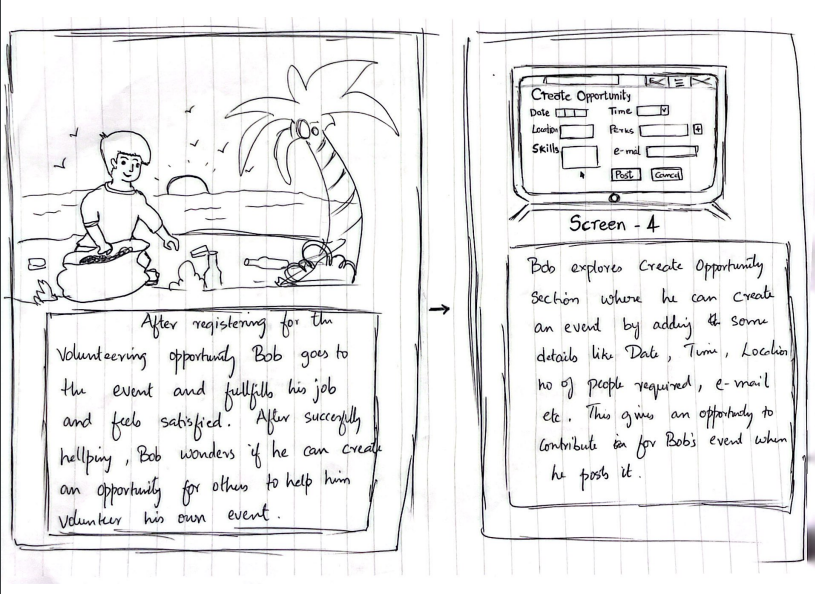 After registering for the
Volunteering opportunity Bob goes to
the event and fullfills his job
and feels satisfied. After succesfully
hellping, Bob wonders if he can create
an opportunity for others to help him
Volunteer his own event.
Create Opportunity
Date
Time
Location
Perks
+
Skills
e-mail
Post
Cancel
Screen - 4
Bob explores Create Opportunity
section where he can create
an event by adding some
details like Date, Time, Location
no of people required, e-mail
etc. This gives an opportunity to
Contribute for Bob's event when
he posts it.